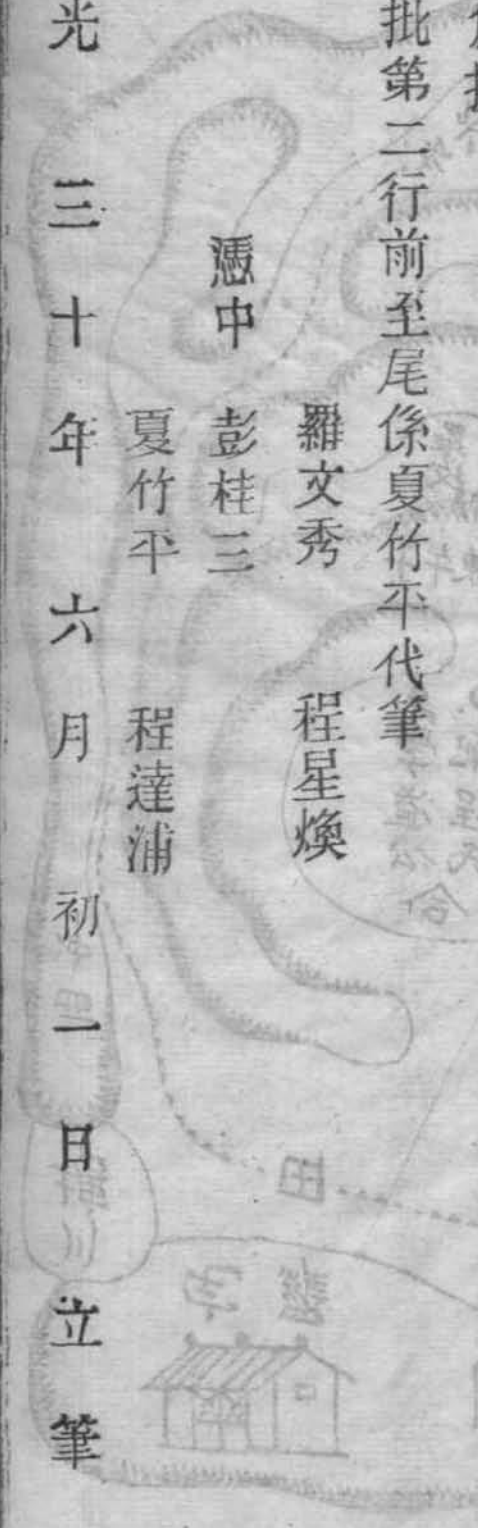 批第二行前至尾係夏竹平代筆
羅文秀 程星煥
憑中 彭桂三
夏竹平 程達浦
光三十年六月初一日立筆